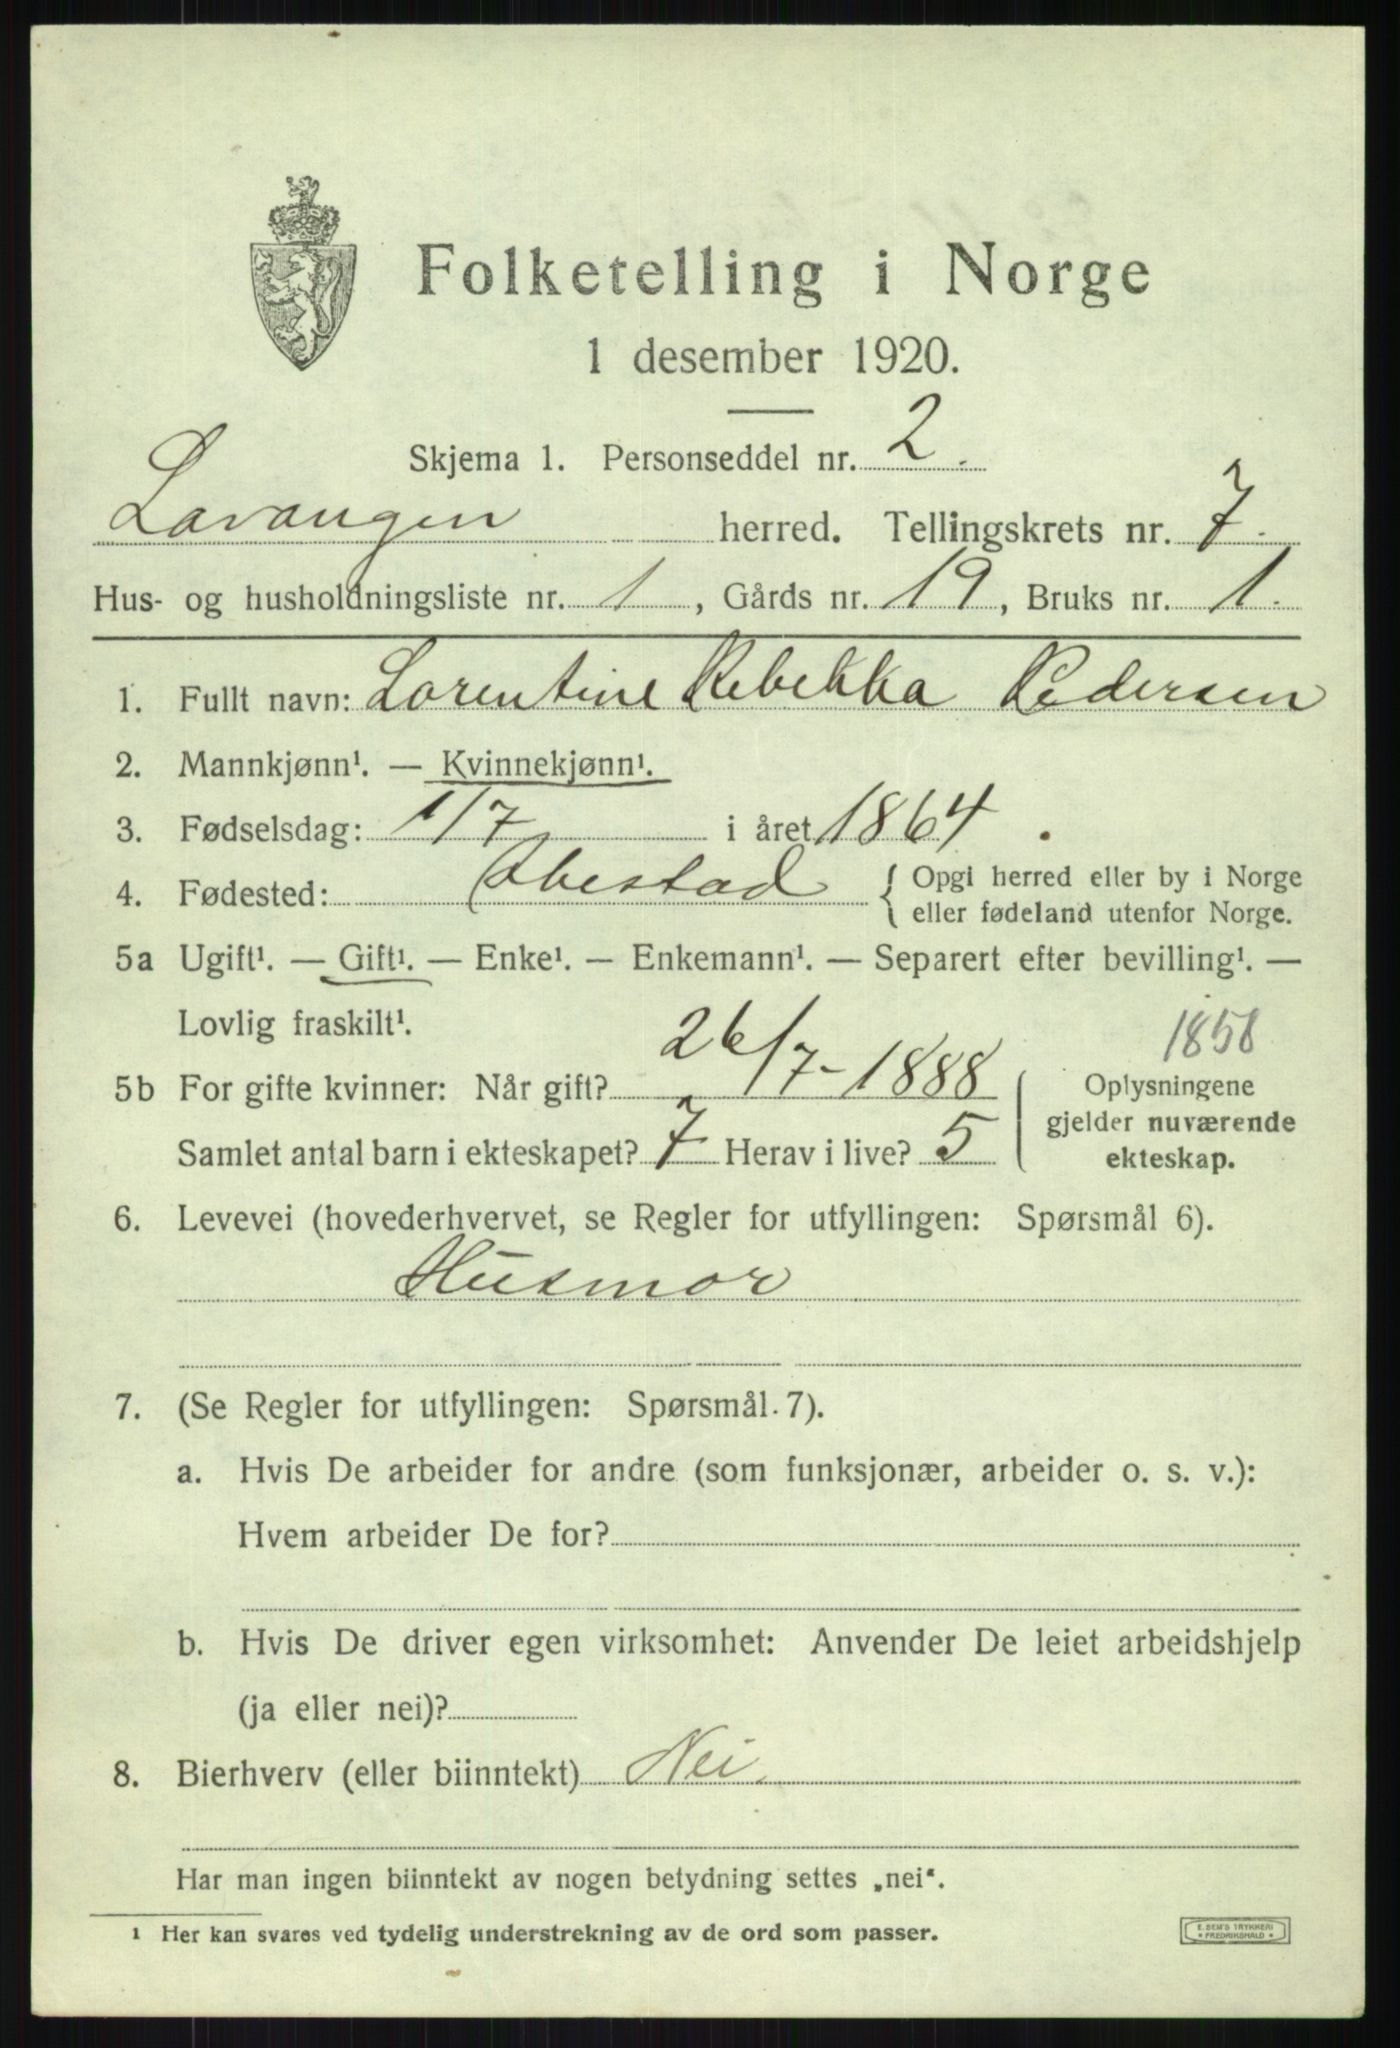 Folketelling i Norge
1 desember 1920.
Skjema 1. Personseddel nr. 2.
Lavangen herred. Tellingskrets nr. 7.
Hus- og husholdningsliste nr. 1, Gårds nr. 19, Bruks nr. 1.
1. Fullt navn: Lorentine Rebekka Pedersen
2. Mannkjønn¹. — Kvinnekjønn¹.
3. Fødselsdag: 1/7 i året 1864.
4. Fødested: Ibestad { Opgi herred eller by i Norge
eller fødeland utenfor Norge.
5a Ugift¹. — Gift¹. — Enke¹. — Enkemann¹. — Separert efter bevilling¹. —
Lovlig fraskilt¹.
1858
5b For gifte kvinner: Når gift? 26/7-1888
Samlet antal barn i ekteskapet? 7 Herav i live? 5
Oplysningene
gjelder nuværende
ekteskap.
6. Levevei (hovederhvervet, se Regler for utfyllingen: Spørsmål 6).
Husmor
7. (Se Regler for utfyllingen: Spørsmål 7).
a. Hvis De arbeider for andre (som funksjonær, arbeider o. s. v.):
Hvem arbeider De for?
b. Hvis De driver egen virksomhet: Anvender De leiet arbeidshjelp
(ja eller nei)?
8. Bierhverv (eller biinntekt) Nei.
Har man ingen biinntekt av nogen betydning settes „nei“.
1 Her kan svares ved tydelig understrekning av de ord som passer.
E. SEM'S TRYKKERI
* FREDRIKSHALD *